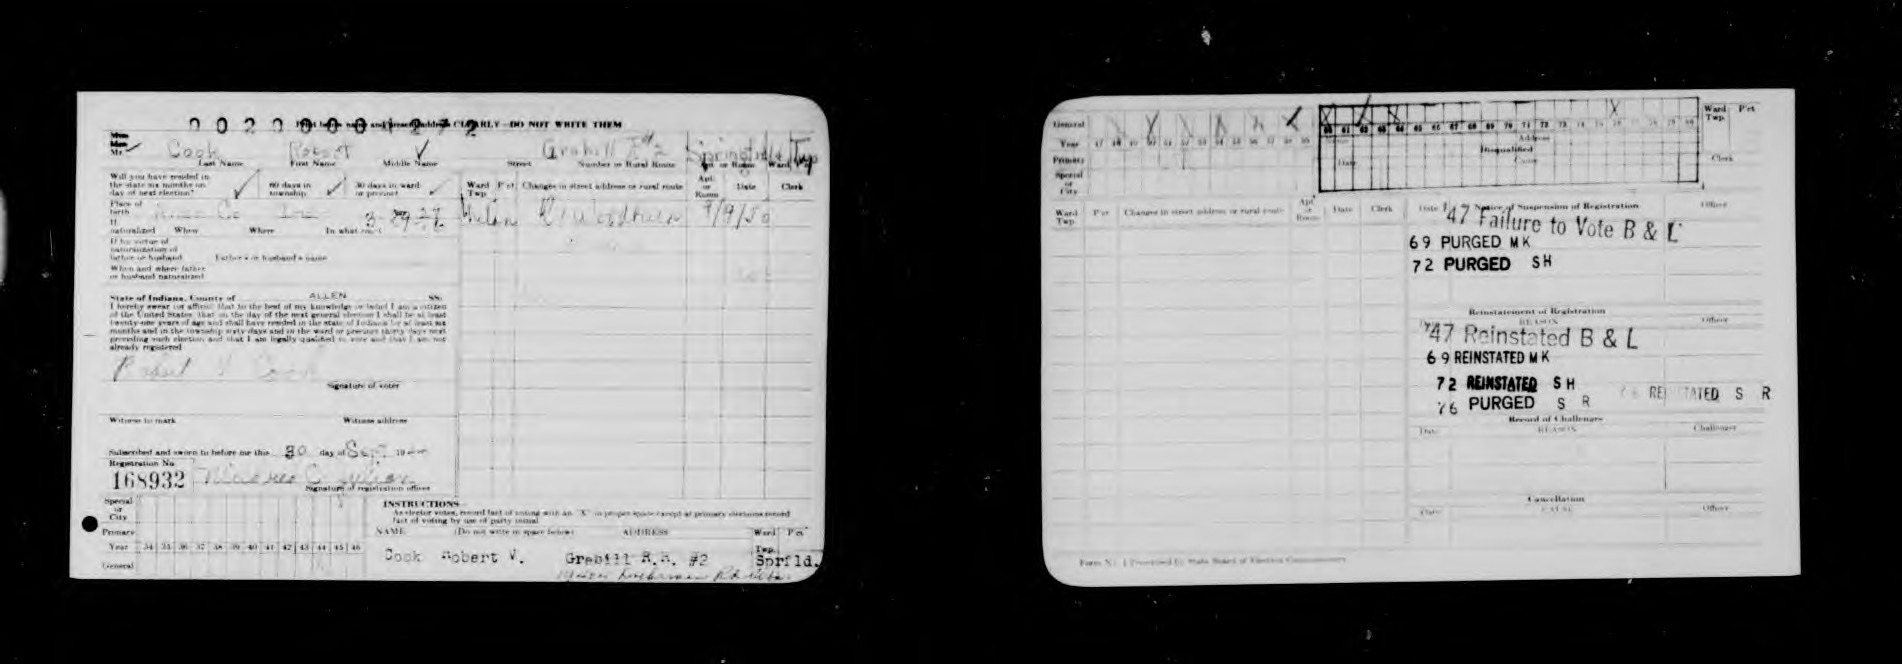 0020000 1272
CLEARLY—DO NOT WRITE THEM
Mr. ✓ Cook Robert ✓ Grabill R#2 Twp
Last Name First Name Middle Name Street Number or Rural Route Ward
Will you have resided in
the state six months on
day of next election? ✓ 60 days in township ✓ 30 days in ward or precinct ✓
Place of
birth
If
naturalized When Where In what court
If by virtue of
naturalization of
father or husband Father's or husband's name
When and where father
or husband naturalized
State of Indiana, County of ALLEN SS:
I hereby swear (or affirm) that to the best of my knowledge or belief I am a citizen
of the United States, that on the day of the next general election I shall be at least
twenty-one years of age and shall have resided in the state of Indiana for at least six
months and in the township sixty days and in the ward or precinct thirty days next
preceding such election and that I am legally qualified to vote and that I am not
already registered
Robert V Cook
Signature of voter
Witness to mark Witness address
Subscribed and sworn to before me this 30 day of Sept 19
Registration No.
168932
Signature of registration officer
Ward Twp. P'ct Changes in street address or rural route Apt. or Room Date Clerk
Milan 9/9/50
Special
or
City
Primary
Year 34 35 36 37 38 39 40 41 42 43 44 45 46
General
INSTRUCTIONS—
As elector votes, record fact of voting with an "X" in proper space except at primary elections record
fact of voting by use of party initial
NAME (Do not write in space below) ADDRESS Ward P'ct
Twp.
Cook Robert V. Grabill R.R. #2 Sprfld.
General
Year 47 48 49 50 51 52 53 54 55 56 57 58 59 60 61 62 63 64 65 66 67 68 69 70 71 72 73 74 75 76 77 78 79 80
Primary
Special
or
City
Name Address
Disqualified
Date Cause
Ward
Twp. P'ct
Clerk
Ward
Twp. P'ct Changes in street address or rural route Apt. or Room Date Clerk
Date Notice of Suspension of Registration Officer
'47 Failure to Vote B & L
69 PURGED MK
72 PURGED SH
Reinstatement of Registration
REASON Officer
'47 Reinstated B & L
69 REINSTATED MK
72 REINSTATED SH
REINSTATED S R
76 PURGED S R
Record of Challenges
Date REASON Challenger
Cancellation
Date CAUSE Officer
Form No. 1 Prescribed by State Board of Election Commissioners